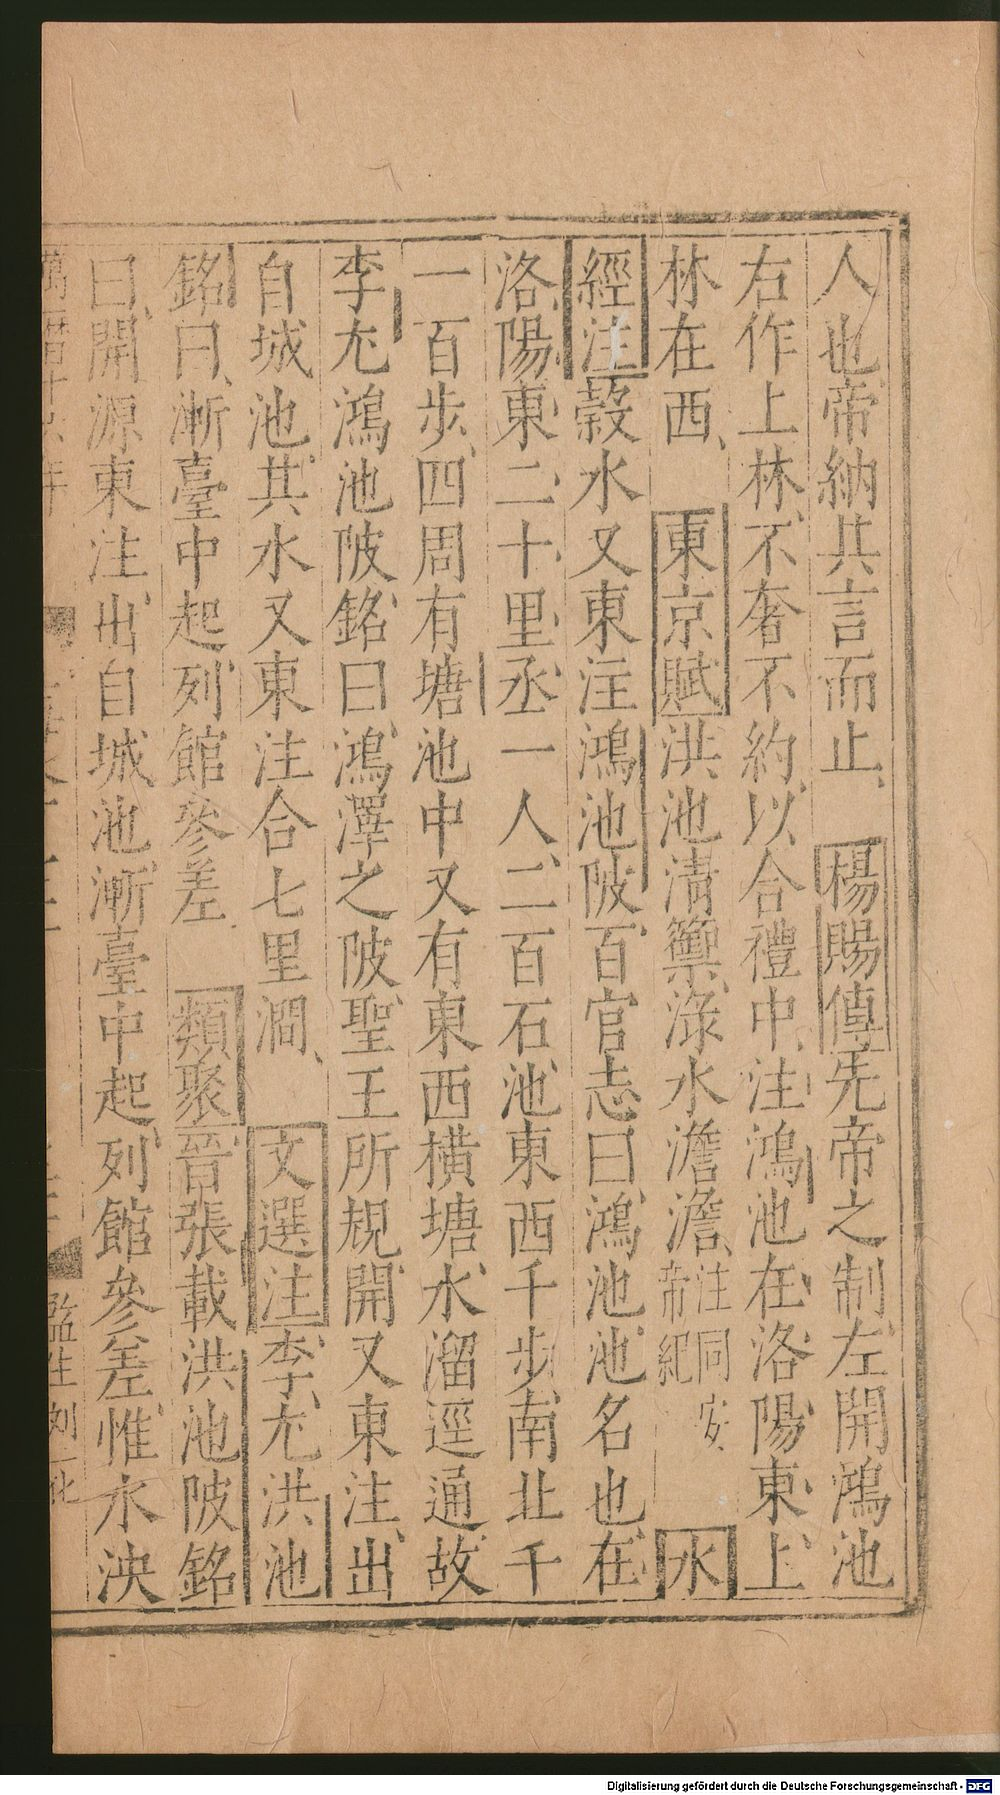 人也帝納其言而止、　楊賜傳先帝之制左開鴻池
右作上林不奢不約以合禮中、注鴻池在洛陽東、上
林在西、　東京賦洪池清籞淥水澹澹、注同安帝紀　水
經注穀水又東注鴻池陂百官志曰鴻池池名也在
洛陽東二十里丞一人二百石池東西千步南北千
一百步四周有塘池中又有東西橫塘水溜逕通故
李尤鴻池陂銘曰鴻澤之陂聖王所規開又東注出
自城池其水又東注合七里澗、　文選注李尤洪池
銘曰漸臺中起列館參差　類聚晉張載洪池陂銘
曰開源東注出自城池漸臺中起列館參差惟水泱
萬曆十　年　監生刘
Digitalisierung gefördert durch die Deutsche Forschungsgemeinschaft - DFG